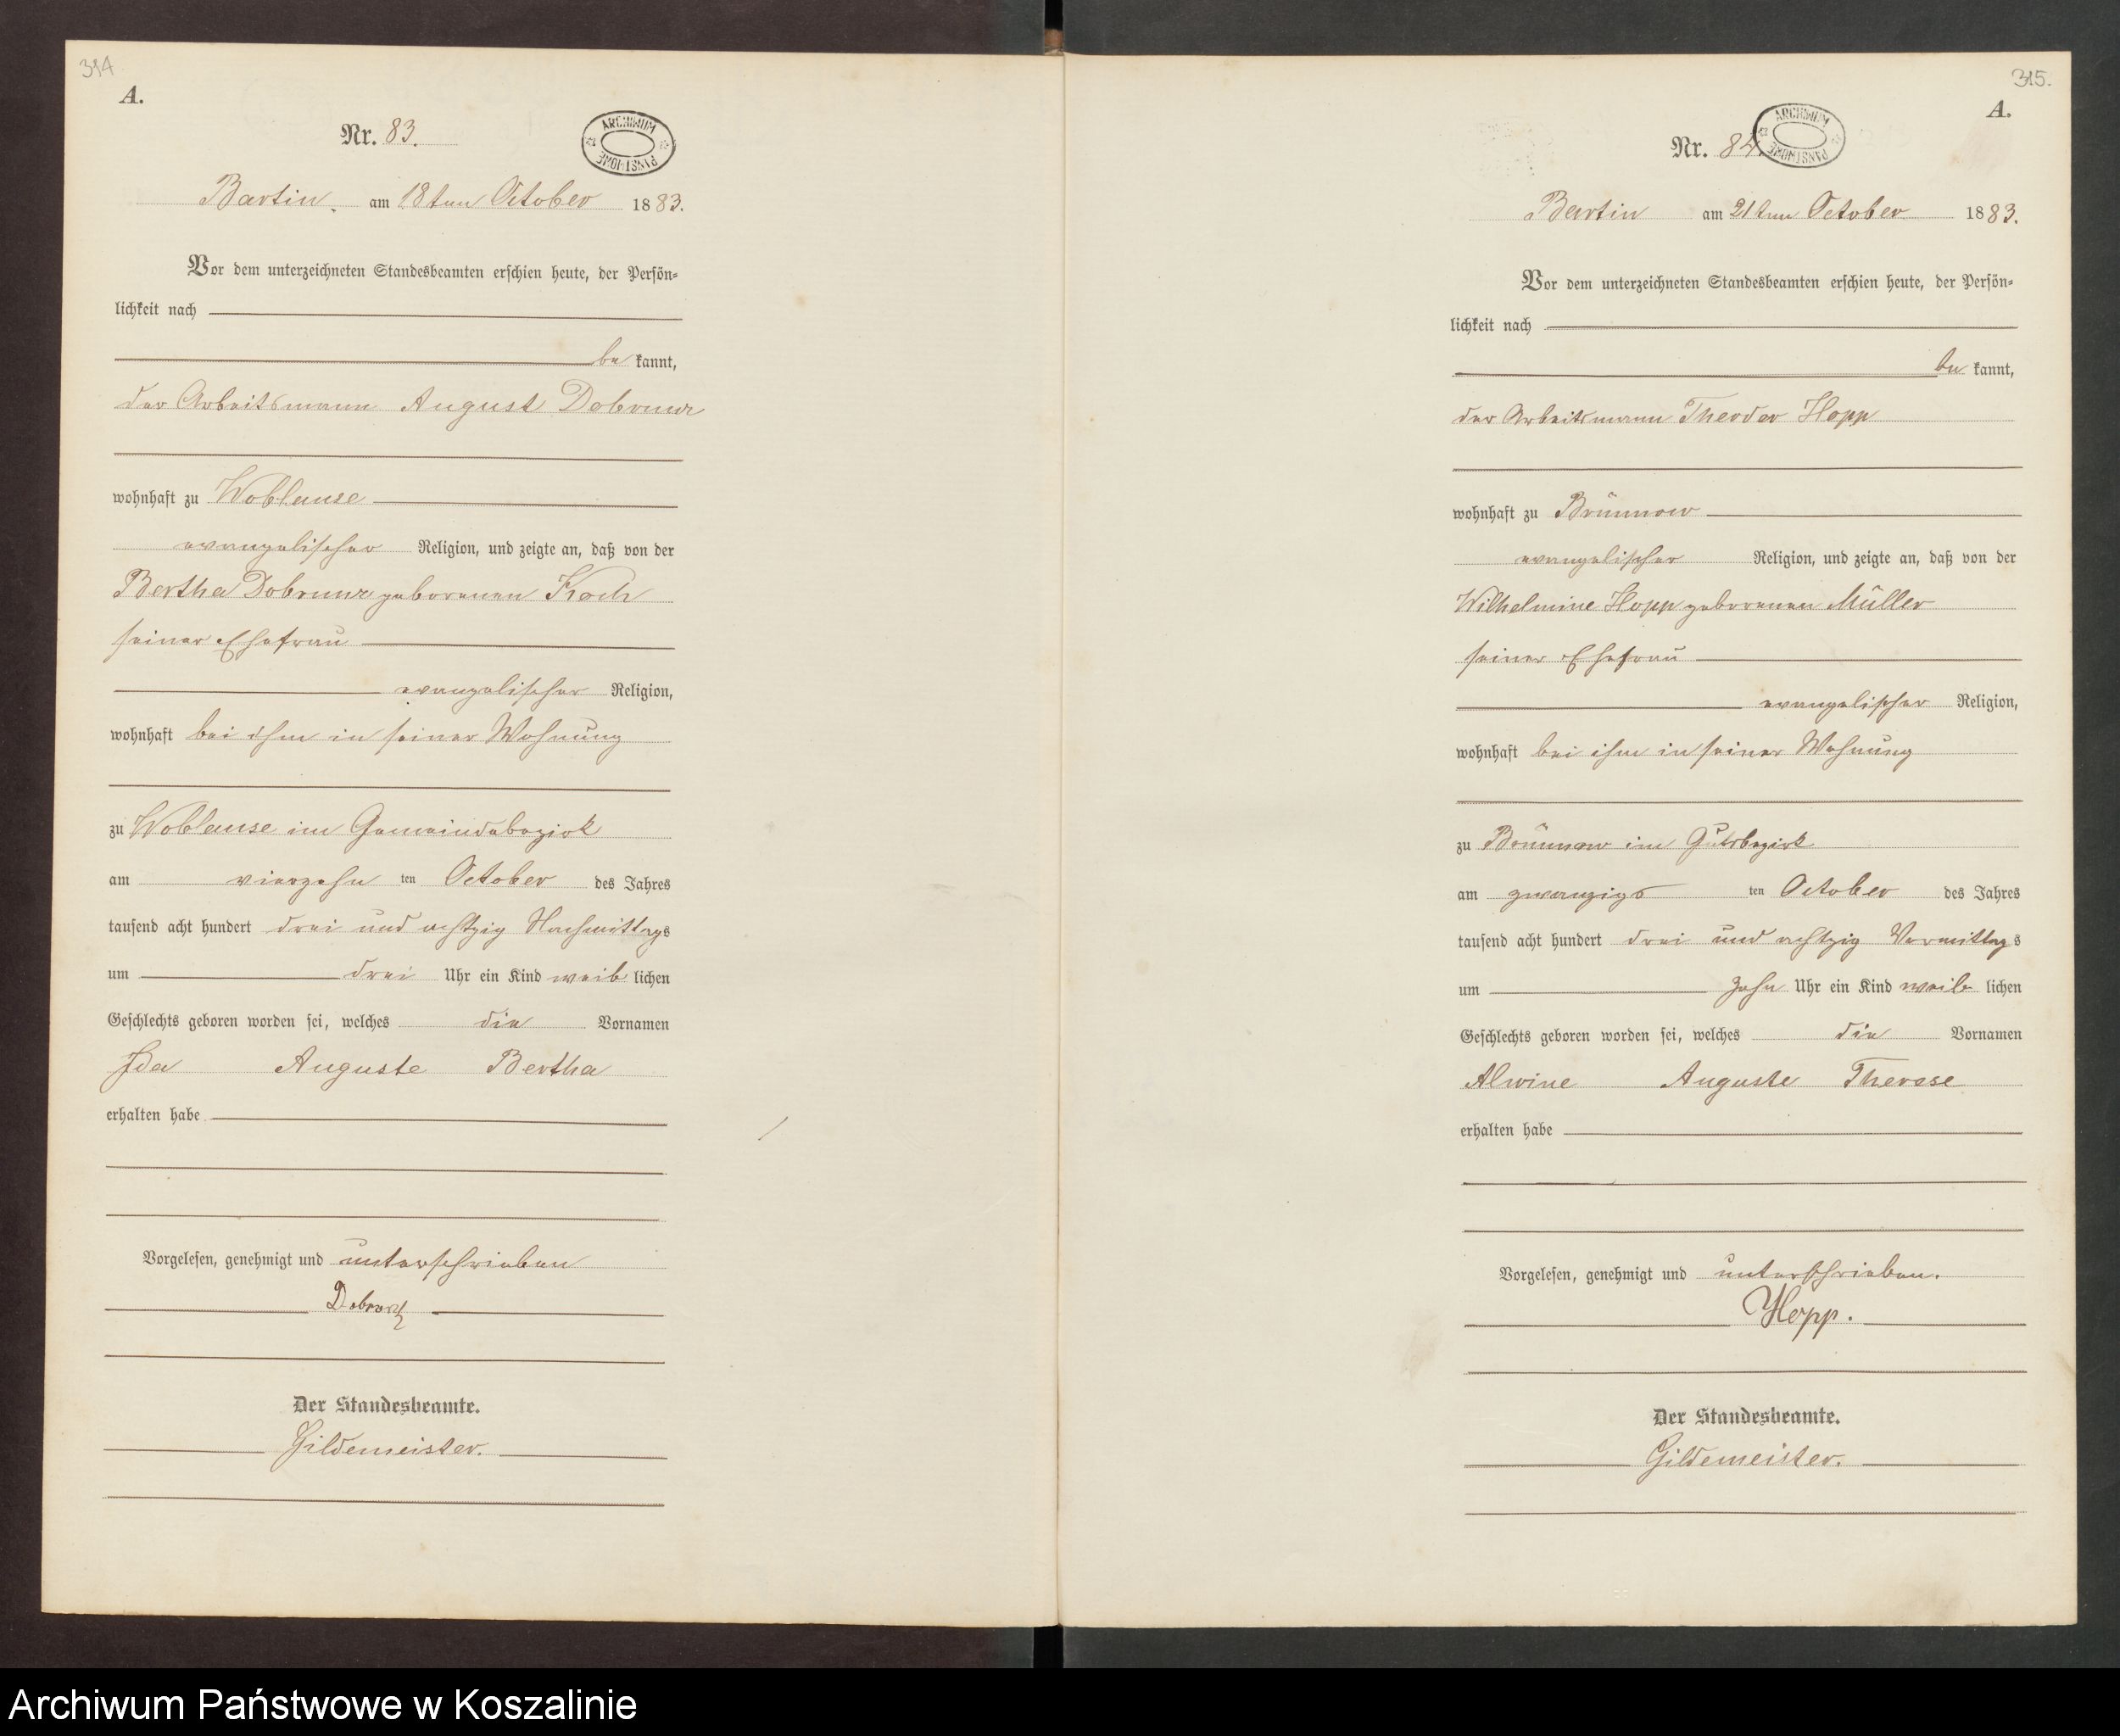 394
A.
Nr. 83.
ARCHIWUM PAŃSTWOWE
Bartin, am 18ten October 1883.
Vor dem unterzeichneten Standesbeamten erschien heute, der Persön-
lichkeit nach
be kannt,
der Arbeitsmann August
wohnhaft zu Woblanse
evangelischer Religion, und zeigte an, daß von der
Bertha geborenen Koch
seiner Ehefrau
evangelischer Religion,
wohnhaft bei ihm in seiner Wohnung
zu Woblanse im Gemeindebezirk
am vierzehn ten October des Jahres
tausend acht hundert drei und achtzig Nachmittags
um drei Uhr ein Kind weib lichen
Geschlechts geboren worden sei, welches die Vornamen
Ida Auguste Bertha
erhalten habe
Vorgelesen, genehmigt und unterschrieben
Der Standesbeamte.
Gildemeister.
315.
A.
Nr. 84.
ARCHIWUM PAŃSTWOWE
Bartin am 21ten October 1883.
Vor dem unterzeichneten Standesbeamten erschien heute, der Persön-
lichkeit nach
be kannt,
der Arbeitsmann Theodor Hopp
wohnhaft zu Brünnow
evangelischer Religion, und zeigte an, daß von der
Wilhelmine Hopp geborenen Müller
seiner Ehefrau
evangelischer Religion,
wohnhaft bei ihm in seiner Wohnung
zu Brünnow im Gutsbezirk
am zwanzigs ten October des Jahres
tausend acht hundert drei und achtzig Vormittags
um zehn Uhr ein Kind weib lichen
Geschlechts geboren worden sei, welches die Vornamen
Alwine Auguste Therese
erhalten habe
Vorgelesen, genehmigt und unterschrieben.
Hopp.
Der Standesbeamte.
Gildemeister.
Archiwum Państwowe w Koszalinie